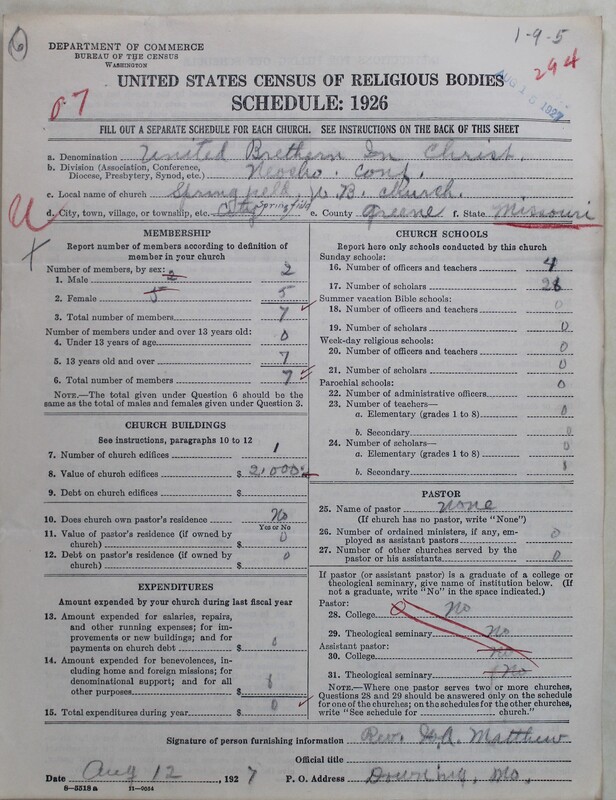 6
1-9-5
DEPARTMENT OF COMMERCE
BUREAU OF THE CENSUS
WASHINGTON
294
AUG 15 1927
07
UNITED STATES CENSUS OF RELIGIOUS BODIES
SCHEDULE: 1926
FILL OUT A SEPARATE SCHEDULE FOR EACH CHURCH. SEE INSTRUCTIONS ON THE BACK OF THIS SHEET
a. Denomination United Brethern In Christ.
b. Division (Association, Conference, Diocese, Presbytery, Synod, etc.) Neosho. Conf.
c. Local name of church Springfield U B. Church.
d. City, town, village, or township, etc. City Springfield e. County Greene f. State Missouri
U
X
MEMBERSHIP
Report number of members according to definition of
member in your church
Number of members, by sex:
1. Male 2 2
2. Female 5 5
3. Total number of members 7
Number of members under and over 13 years old:
4. Under 13 years of age 0
5. 13 years old and over 7
6. Total number of members 7
NOTE.—The total given under Question 6 should be
the same as the total of males and females given under Question 3.
CHURCH BUILDINGS
See instructions, paragraphs 10 to 12
7. Number of church edifices 1
8. Value of church edifices $ 2,000
9. Debt on church edifices $
10. Does church own pastor's residence No
Yes or No
11. Value of pastor's residence (if owned by
church) $ 0
12. Debt on pastor's residence (if owned by
church) $ 0
EXPENDITURES
Amount expended by your church during last fiscal year
13. Amount expended for salaries, repairs,
and other running expenses; for im-
provements or new buildings; and for
payments on church debt $ 0
14. Amount expended for benevolences, in-
cluding home and foreign missions; for
denominational support; and for all
other purposes $
15. Total expenditures during year $ 0
CHURCH SCHOOLS
Report here only schools conducted by this church
Sunday schools:
16. Number of officers and teachers 4
17. Number of scholars 28
Summer vacation Bible schools:
18. Number of officers and teachers 0
19. Number of scholars 0
Week-day religious schools:
20. Number of officers and teachers 0
21. Number of scholars 0
Parochial schools: 0
22. Number of administrative officers
23. Number of teachers—
a. Elementary (grades 1 to 8) 0
b. Secondary 0
24. Number of scholars—
a. Elementary (grades 1 to 8) 0
b. Secondary
PASTOR
25. Name of pastor None
(If church has no pastor, write "None")
26. Number of ordained ministers, if any, em-
ployed as assistant pastors 0
27. Number of other churches served by the
pastor or his assistants 0
If pastor (or assistant pastor) is a graduate of a college or
theological seminary, give name of institution below. (If
not a graduate, write "No" in the space indicated.)
Pastor:
28. College No
29. Theological seminary No
Assistant pastor:
30. College No
31. Theological seminary No
NOTE.—Where one pastor serves two or more churches,
Questions 28 and 29 should be answered only on the schedule
for one of the churches; on the schedules for the other churches,
write "See schedule for church."
Signature of person furnishing information Rev. H. A. Matthew
Official title
Date Aug 12, 1927 P. O. Address Downing, Mo.
8-5518a 11-9054